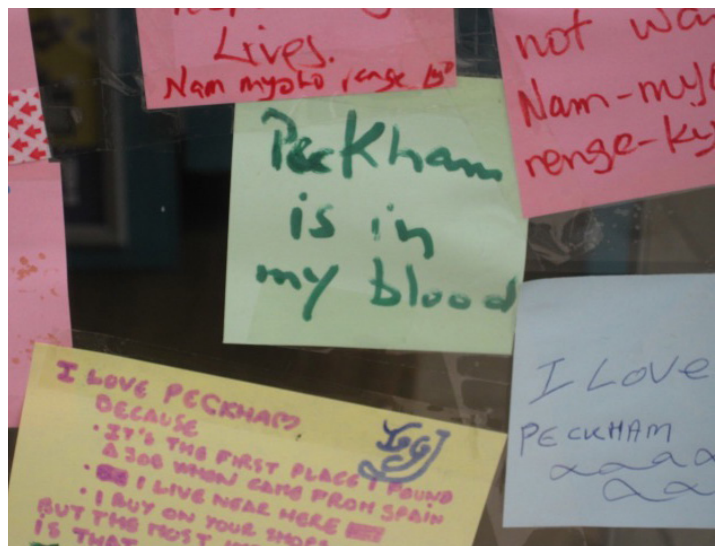 Lives.
Nam myoho renge
not
Nam-myo
renge-ky
Peckham
is in
my blood
I Love
PECKHAM
I LOVE PECKHAM
BECAUSE
• IT'S THE FIRST PLACE I FOUND
A JOB WHEN CAME FROM SPAIN
• I LIVE NEAR HERE
• I BUY ON YOUR SHOPS
BUT THE MOST
IS THAT